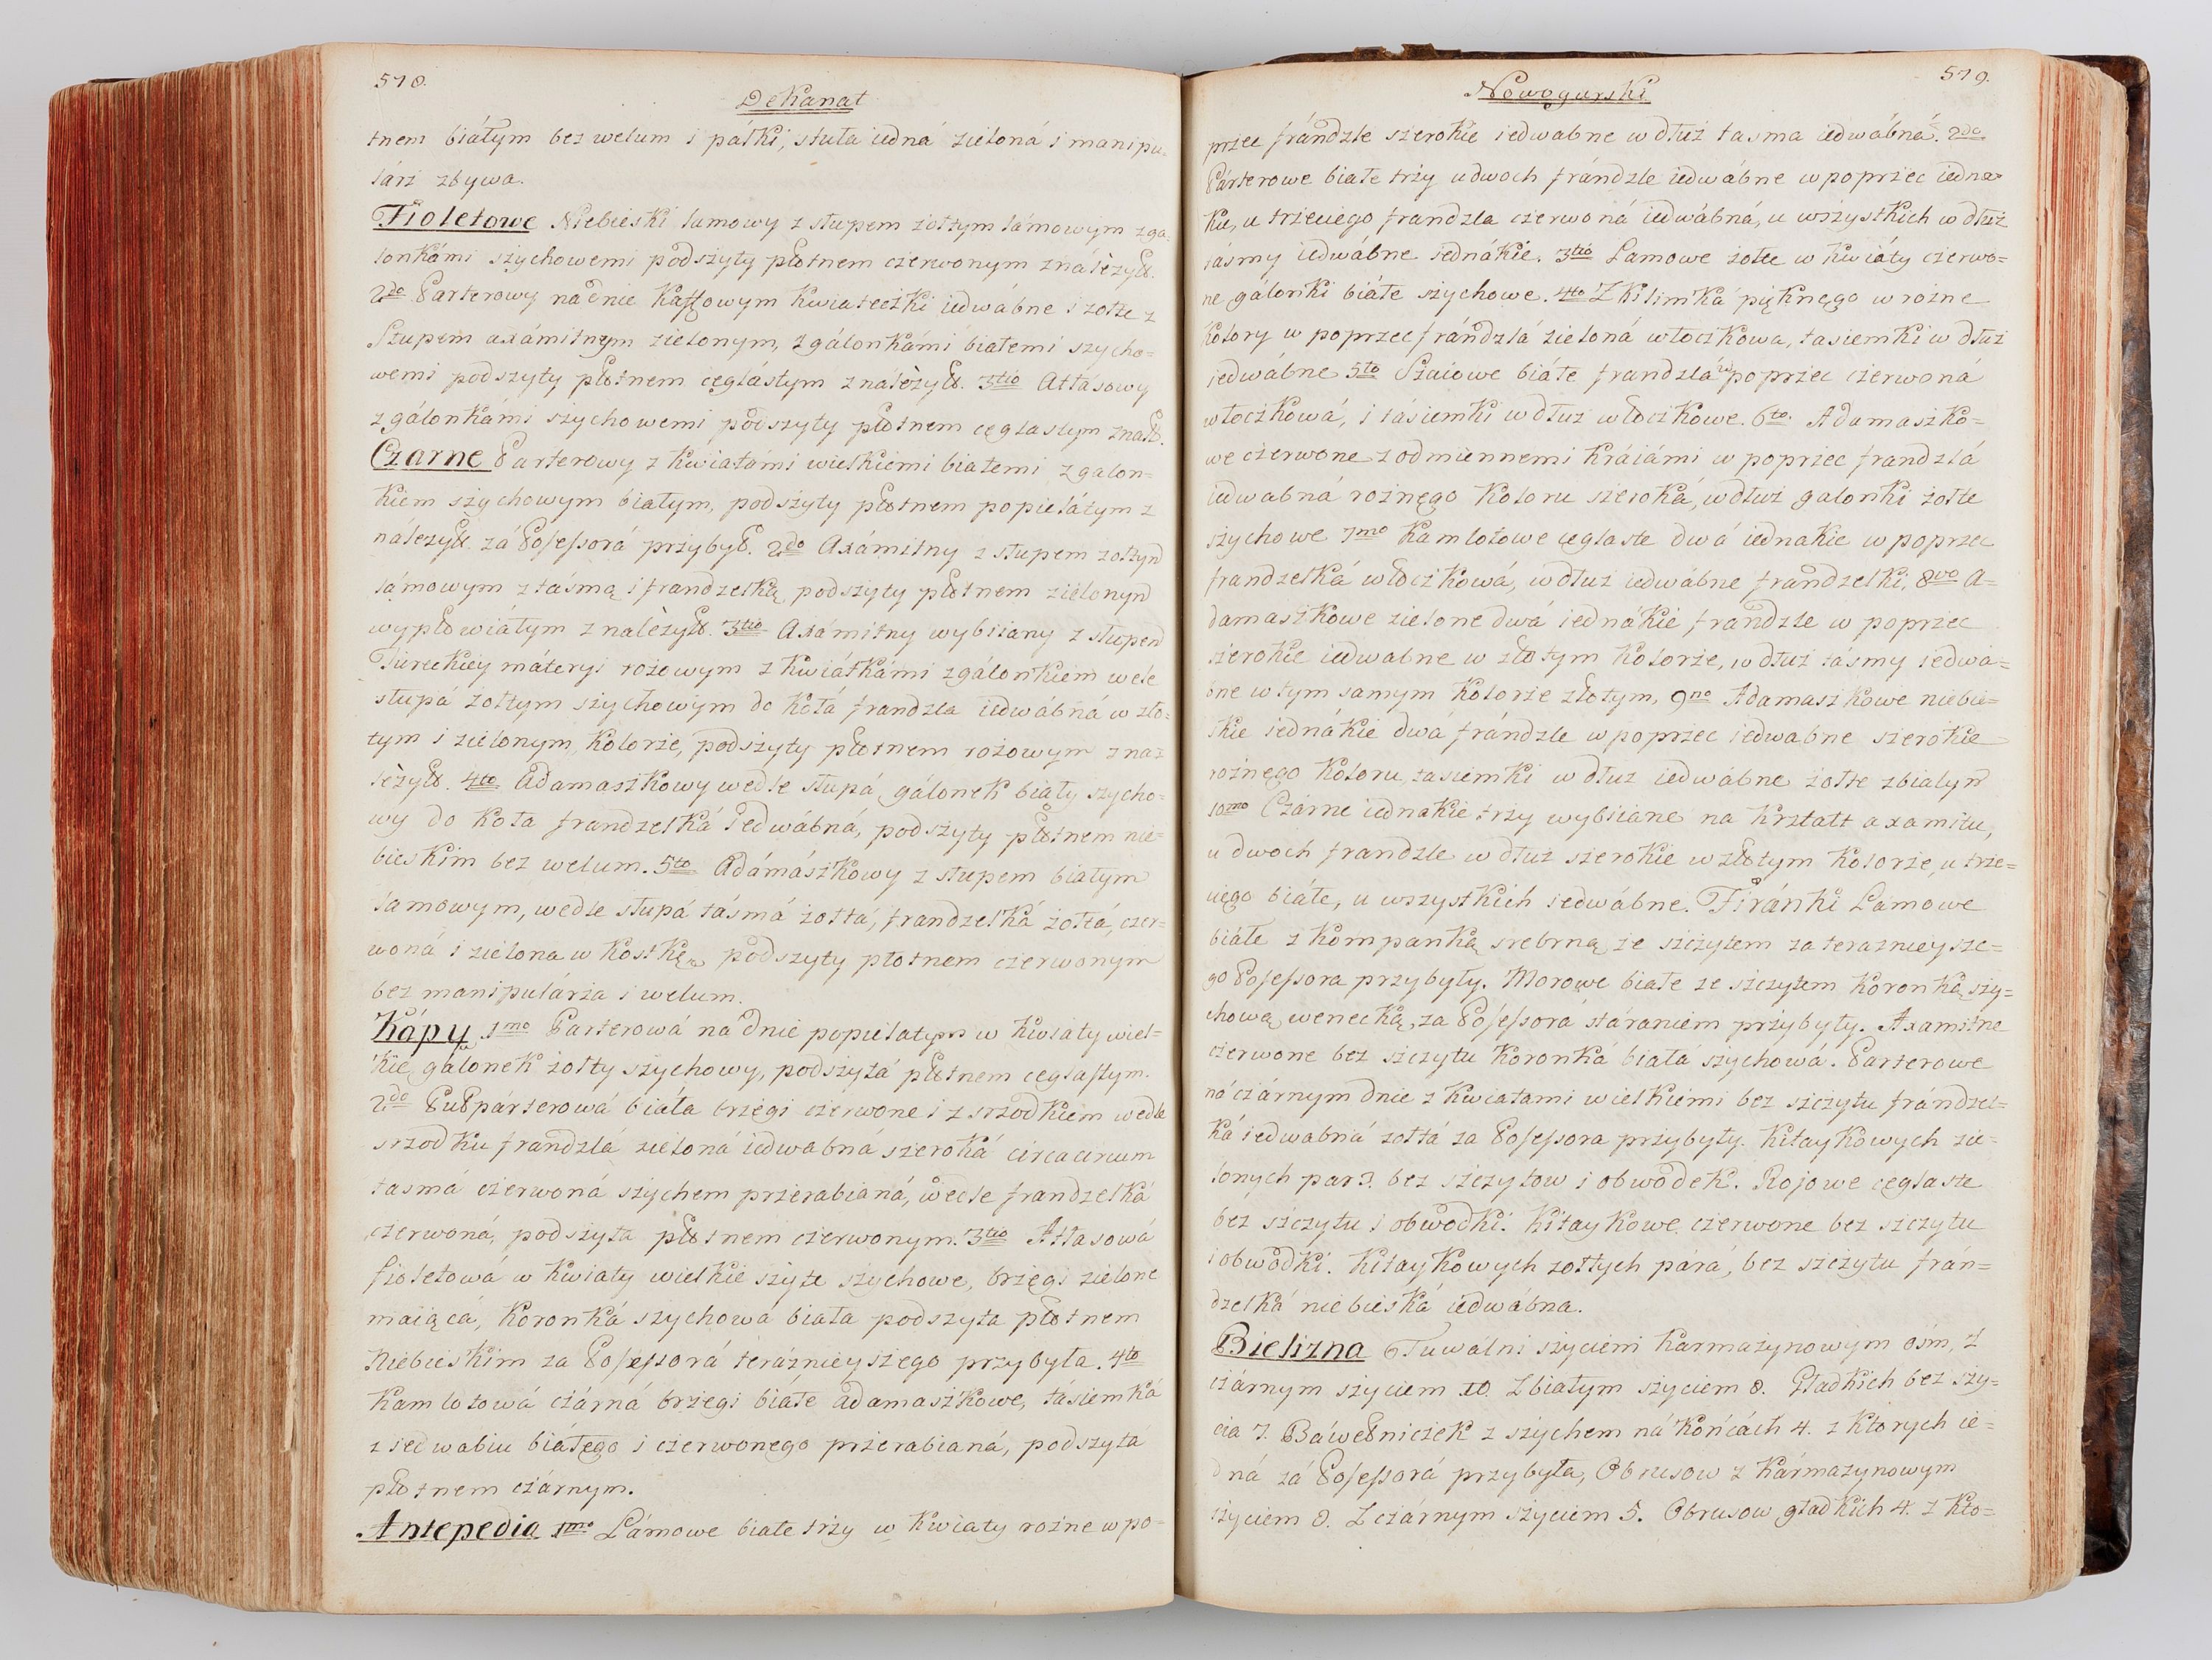 578.
Dekanat
tnem białym bez welum i pałki, stuła iedná zieloná i manipu-
larz zbywa.
Fioletowe Niebieski lamowy z słupem zołtym lámowym z ga-
lonkámi szychowemi podszyty płotnem czerwonym z náleżył.
2do Parterowy ná dnie kaffowym kwiateczki iedwábne i zołte z
Słupem axámitnym zielonym, z gálonkámi białemi szycho=
wemi podszyty płotnem cęglástym z náleżył. 3tio Atłásowy
z gálonkámi szychowemi podszyty płotnem cęglastym z nał.
Czarne Parterowy z kwiatámi wielkiemi białemi z galon=
kiem szychowym białym, podszyty płotnem popielátym z
náleżył. zá Possessorá przybył. 2do Axámitny z słupem zołtym
lámowym z taśmą i frandzelką podszyty płotnem zielonym
wypłowiáłym z należył. 3tio Axámitny wybiiany z słupem
Tureckiey máteryi rożowym z kwiátkámi z gálonkiem wele
słupá żołtym szychowym do kołá frandzla iedwábná w zło=
tym i zielonym kolorze, podszyty płotnem rożowym z na=
leżył. 4to Adamaszkowy wedle słupá gálonek biały szycho=
wy do koła frandzelká Iedwábná, podszyty płotnem nie=
bieskim bez welum. 5to Adámászkowy z słupem białym
lamowym, wedle słupá táśmá żołtá, frandzelká żołtá, czer=
woná i zielona w kostkę podszyty płotnem czerwonym
bez manipulárza i welum.
Kápy 1mo Parterowá ná dnie popielatym w kwiaty wiel=
kie galonek żołty szychowy, podszytá płotnem ceglastym.
2do Pułpárterowá biáła brzegi czerwone i z srzodkiem wedle
srzodku frandzlá zieloná iedwabná szeroká circacircum
tasmá czerwoná szychem przerabianá, wedle frandzelká
czerwoná, podszyta płotnem czerwonym. 3tio Atłasowá
fioletowá w kwiaty wielkie szyte szychowe, brzegi zielone
maiącá, koronká szychowá biała podszyta płotnem
Niebieskim za Possessorá teráznieyszego przybyła. 4to
Kamlotowá czárná brzegi białe adamaszkowe, tásiemká
z iedwabiu białego i czerwonego przerabianá, podszytá
płotnem czárnym.
Antepedia 1mo Lámowe białe trzy w kwiaty rożne w po=
579.
Nowogurski
przec frándzle szerokie iedwabne w dłuż tasma iedwábná. 2do
Párterowe białe trzy u dwoch frándzle iedwábne w poprzec iedna=
kie, u trzeciego frandzla czerwoná iedwábná, u wszystkich w dłuż
táśmy iedwábne iednákie. 3tio Lamowe żołte w kwiáty czerwo=
ne gálonki białe szychowe. 4to Z kilimká pięknęgo w rożne
kolory w poprzec frándzlá zieloná włoczkowa, tasiemki w dłuż
iedwábne 5to Szaiowe biáłe frandzlá w poprzec czerwoná
włoczkowá, i tásiemki w dłuż włoczkowe. 6to Adamaszko=
we czerwone z odmiennemi kráiámi w poprzec frandzlá
iedwabná rożnęgo koloru szeroká, w dłuż galonki żołte
szychowe 7mo Kamlotowe cęglaste dwá iednakie w poprzec
frandzelká włoczkowá, w dłuż iedwábne frandzelki. 8vo A=
damaszkowe zielone dwá iednákie frandzle w poprzec
szerokie iedwabne w złotym kolorze, w dłuż táśmy iedwá=
bne w tym samym kolorze złotym, 9no Adamaszkowe niebie=
skie iednákie dwá frándzle w poprzec iedwabne szerokie
rożnęgo koloru, tasiemki w dłuż iedwábne żołte z białym
10mo Czárne iednakie trzy wybiiane na krztałt axamitu,
u dwoch frandzle w dłuż szerokie w złotym kolorze, u trze=
ciego białe, u wszystkich iedwábne. Firánki Lamowe
białe z kompanką srebrną ze szczytem za teraznieysze=
go Possessora przybyły. Morowe białe ze szczytem koronką szy=
chową wenecką, za Possessorá stáraniem przybyły. Axamitne
czerwone bez szczytu koronká biała szychowá. Parterowe
ná czárnym dnie z kwiatami wielkiemi bez szczytu frándzel=
ká iedwabná żołtá za Possessora przybyły. Kitaykowych zie=
lonych par 3. bez szczytow i obwodek. Rojowe cęglaste
bez szczytu i obwodki. Kitaykowe czerwone bez szczytu
i obwodki. Kitaykowych zołtych párá, bez szczytu frán=
dzelká niebieská iedwábna.
Bielizna Tuwálni szyciem karmazynowym ośm, z
czarnym szyciem 10. Z białym szyciem 8. Gładkich bez szy=
cia 7. Báwełniczek z szychem ná końcách 4. z ktorych ie=
dná zá Possessorá przybyła, Obrusow z kármazynowym
szyciem 8. Z czárnym szyciem 5. Obrusow gładkich 4. z kto=